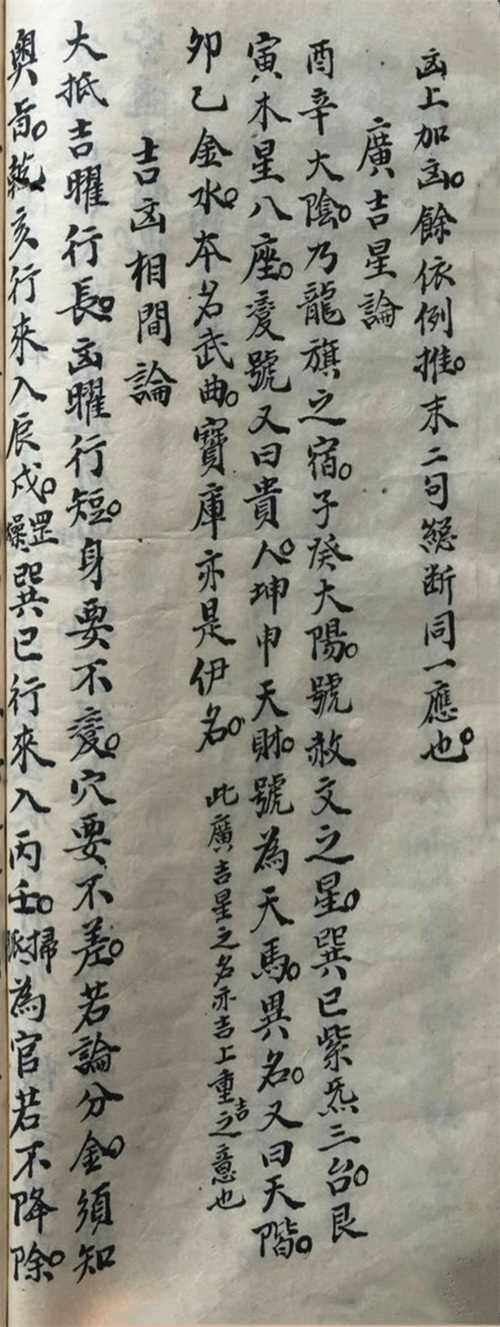 凶上加凶。餘依例推。末二句總断同一應也。
廣吉星論
酉辛大陰。乃龍旗之宿。子癸大陽。號赦文之星。巽巳紫炁三台。艮
寅木星八座。变號又曰貴人。坤申天財。號為天馬。異名。又曰天階。
卯乙金水。本名武曲。寶庫亦是伊名。此廣吉星之名亦吉上重吉之意也
吉凶相間論
大抵吉曜行長。凶曜行短。身要不变。穴要不差。若論分金。須知
奥旨。乾亥行來入辰戌。燥罡巽巳行來入丙壬。掃為官若不降除。